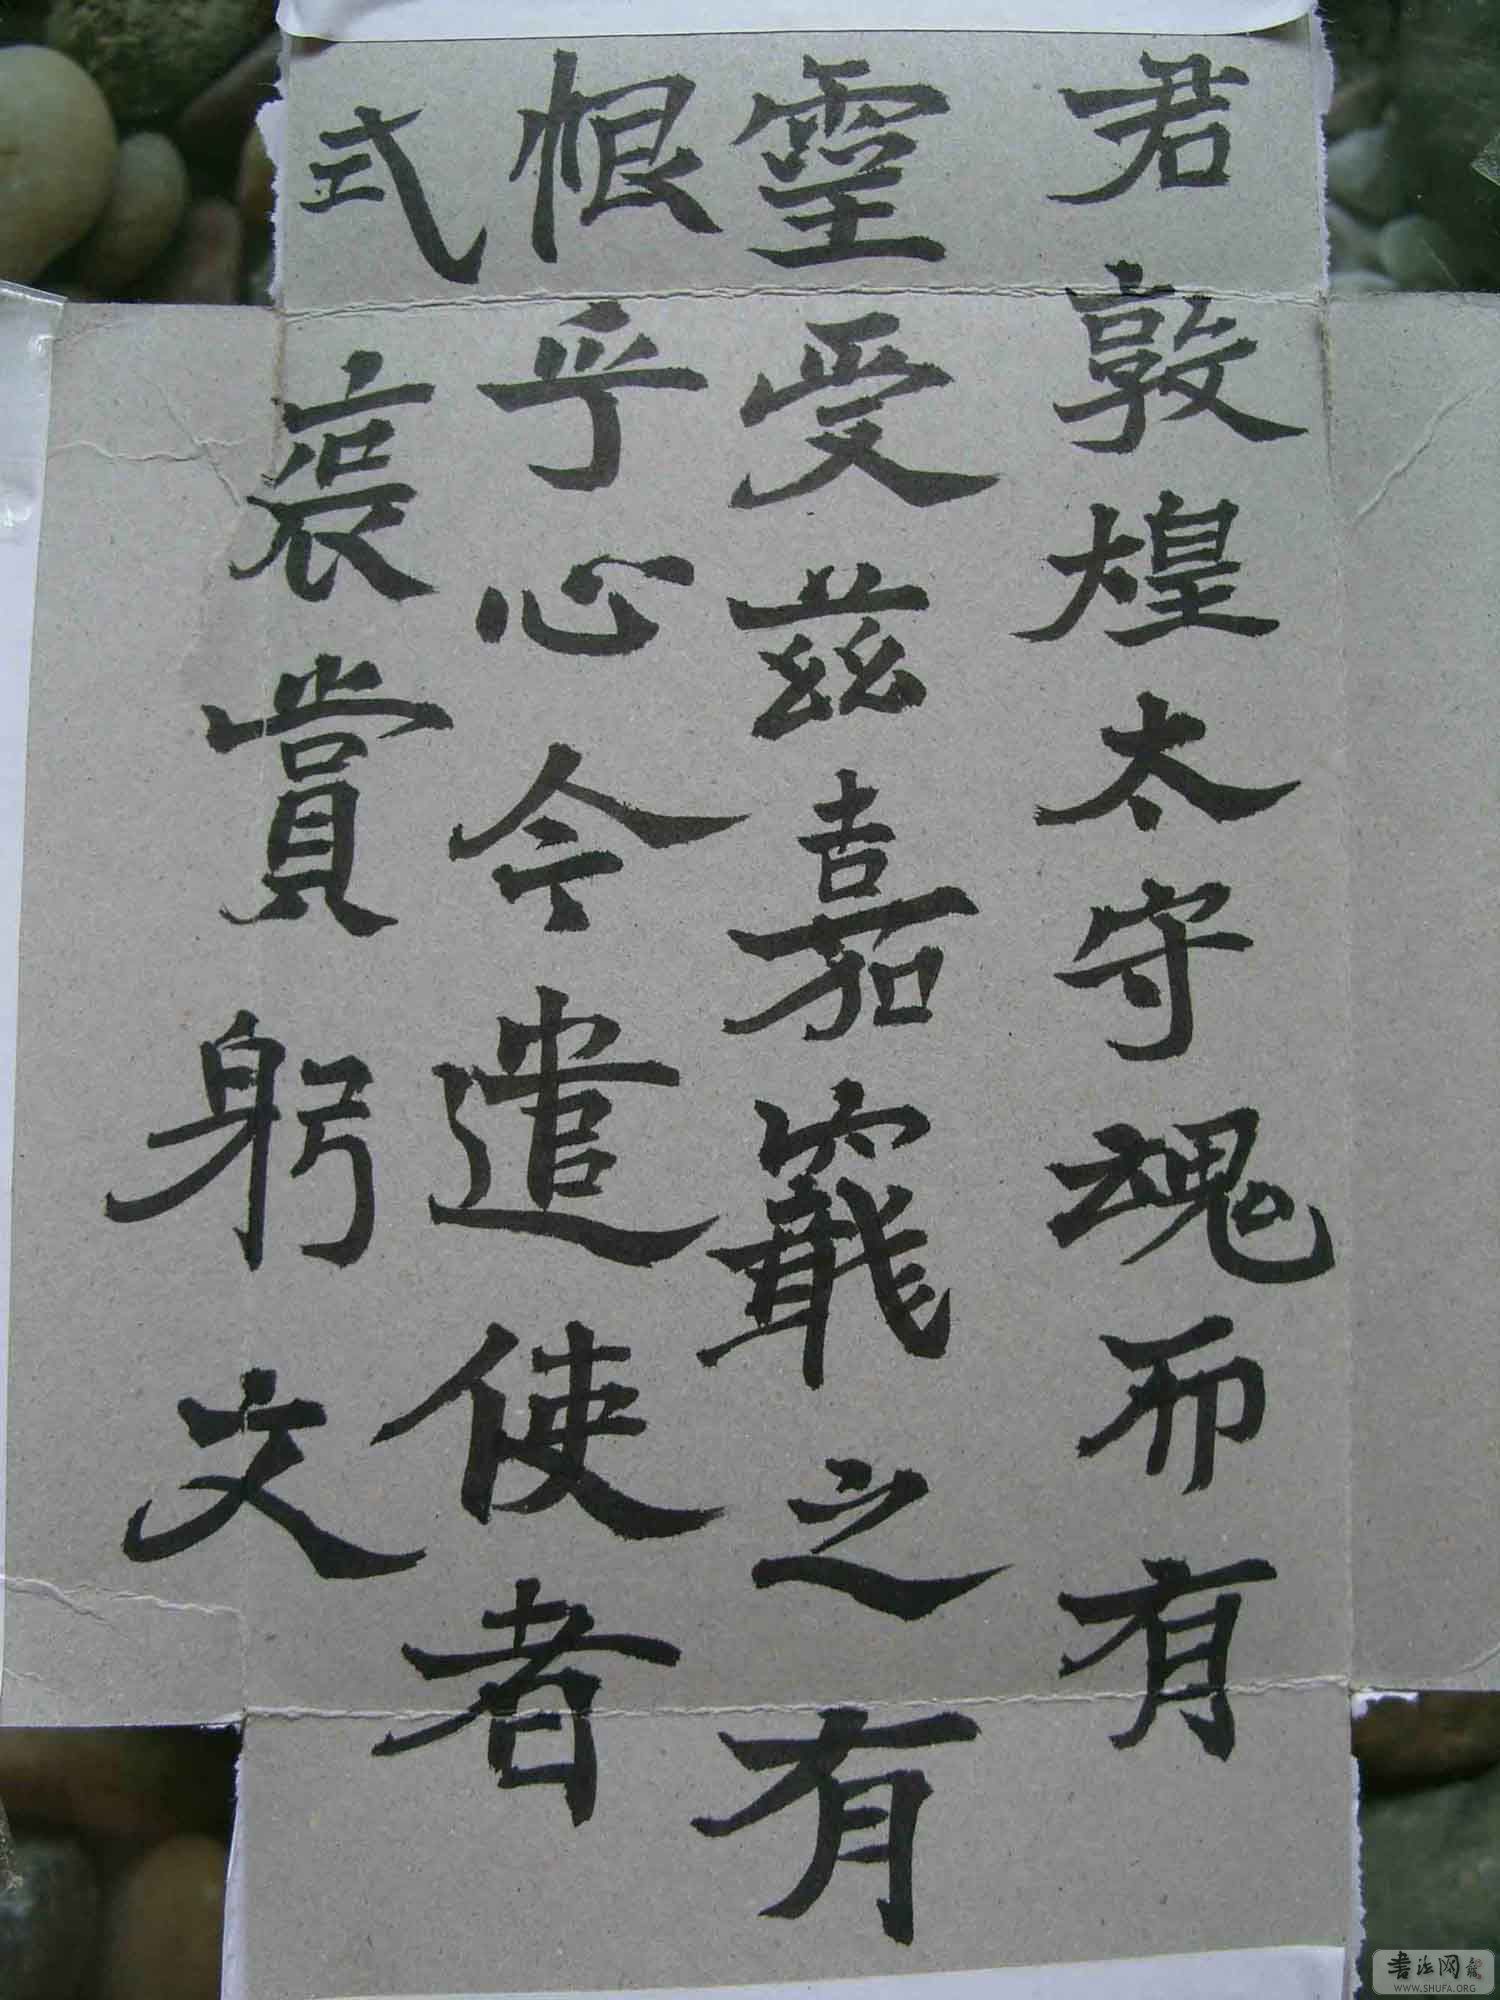 君敦煌太守魂而有
靈受茲嘉寵之有
恨乎心今遣使者
式賞躬文
書法网
WWW.SHUFA.ORG